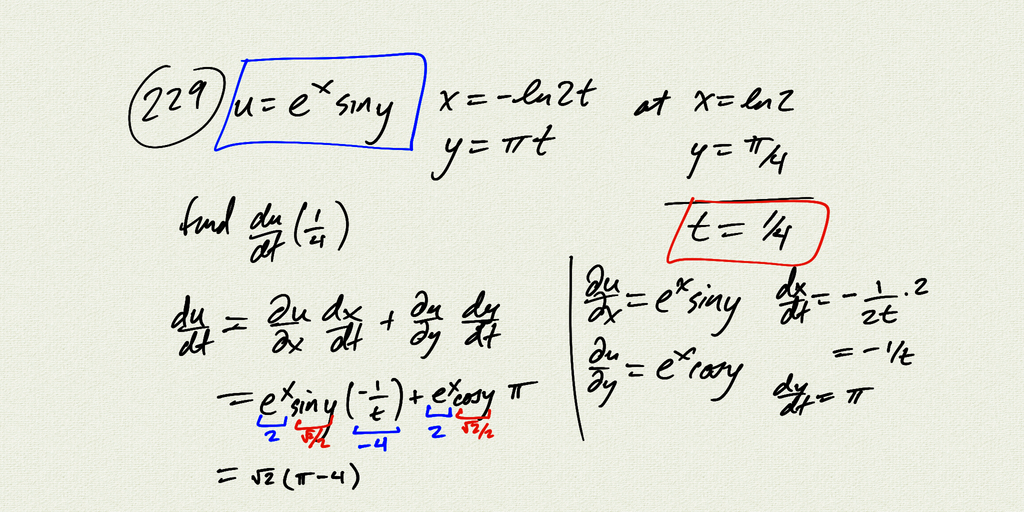 229 u = e^x sin y x = -ln 2t at x = ln 2
y = πt y = π/4
find du/dt (1/4) t = 1/4
du/dt = ∂u/∂x dx/dt + ∂u/∂y dy/dt
= e^x sin y (-1/t) + e^x cos y π
2 √2/2 -4 2 √2/2
= √2 (π - 4)
∂u/∂x = e^x sin y dx/dt = -1/2t · 2
= -1/t
∂u/∂y = e^x cos y
dy/dt = π